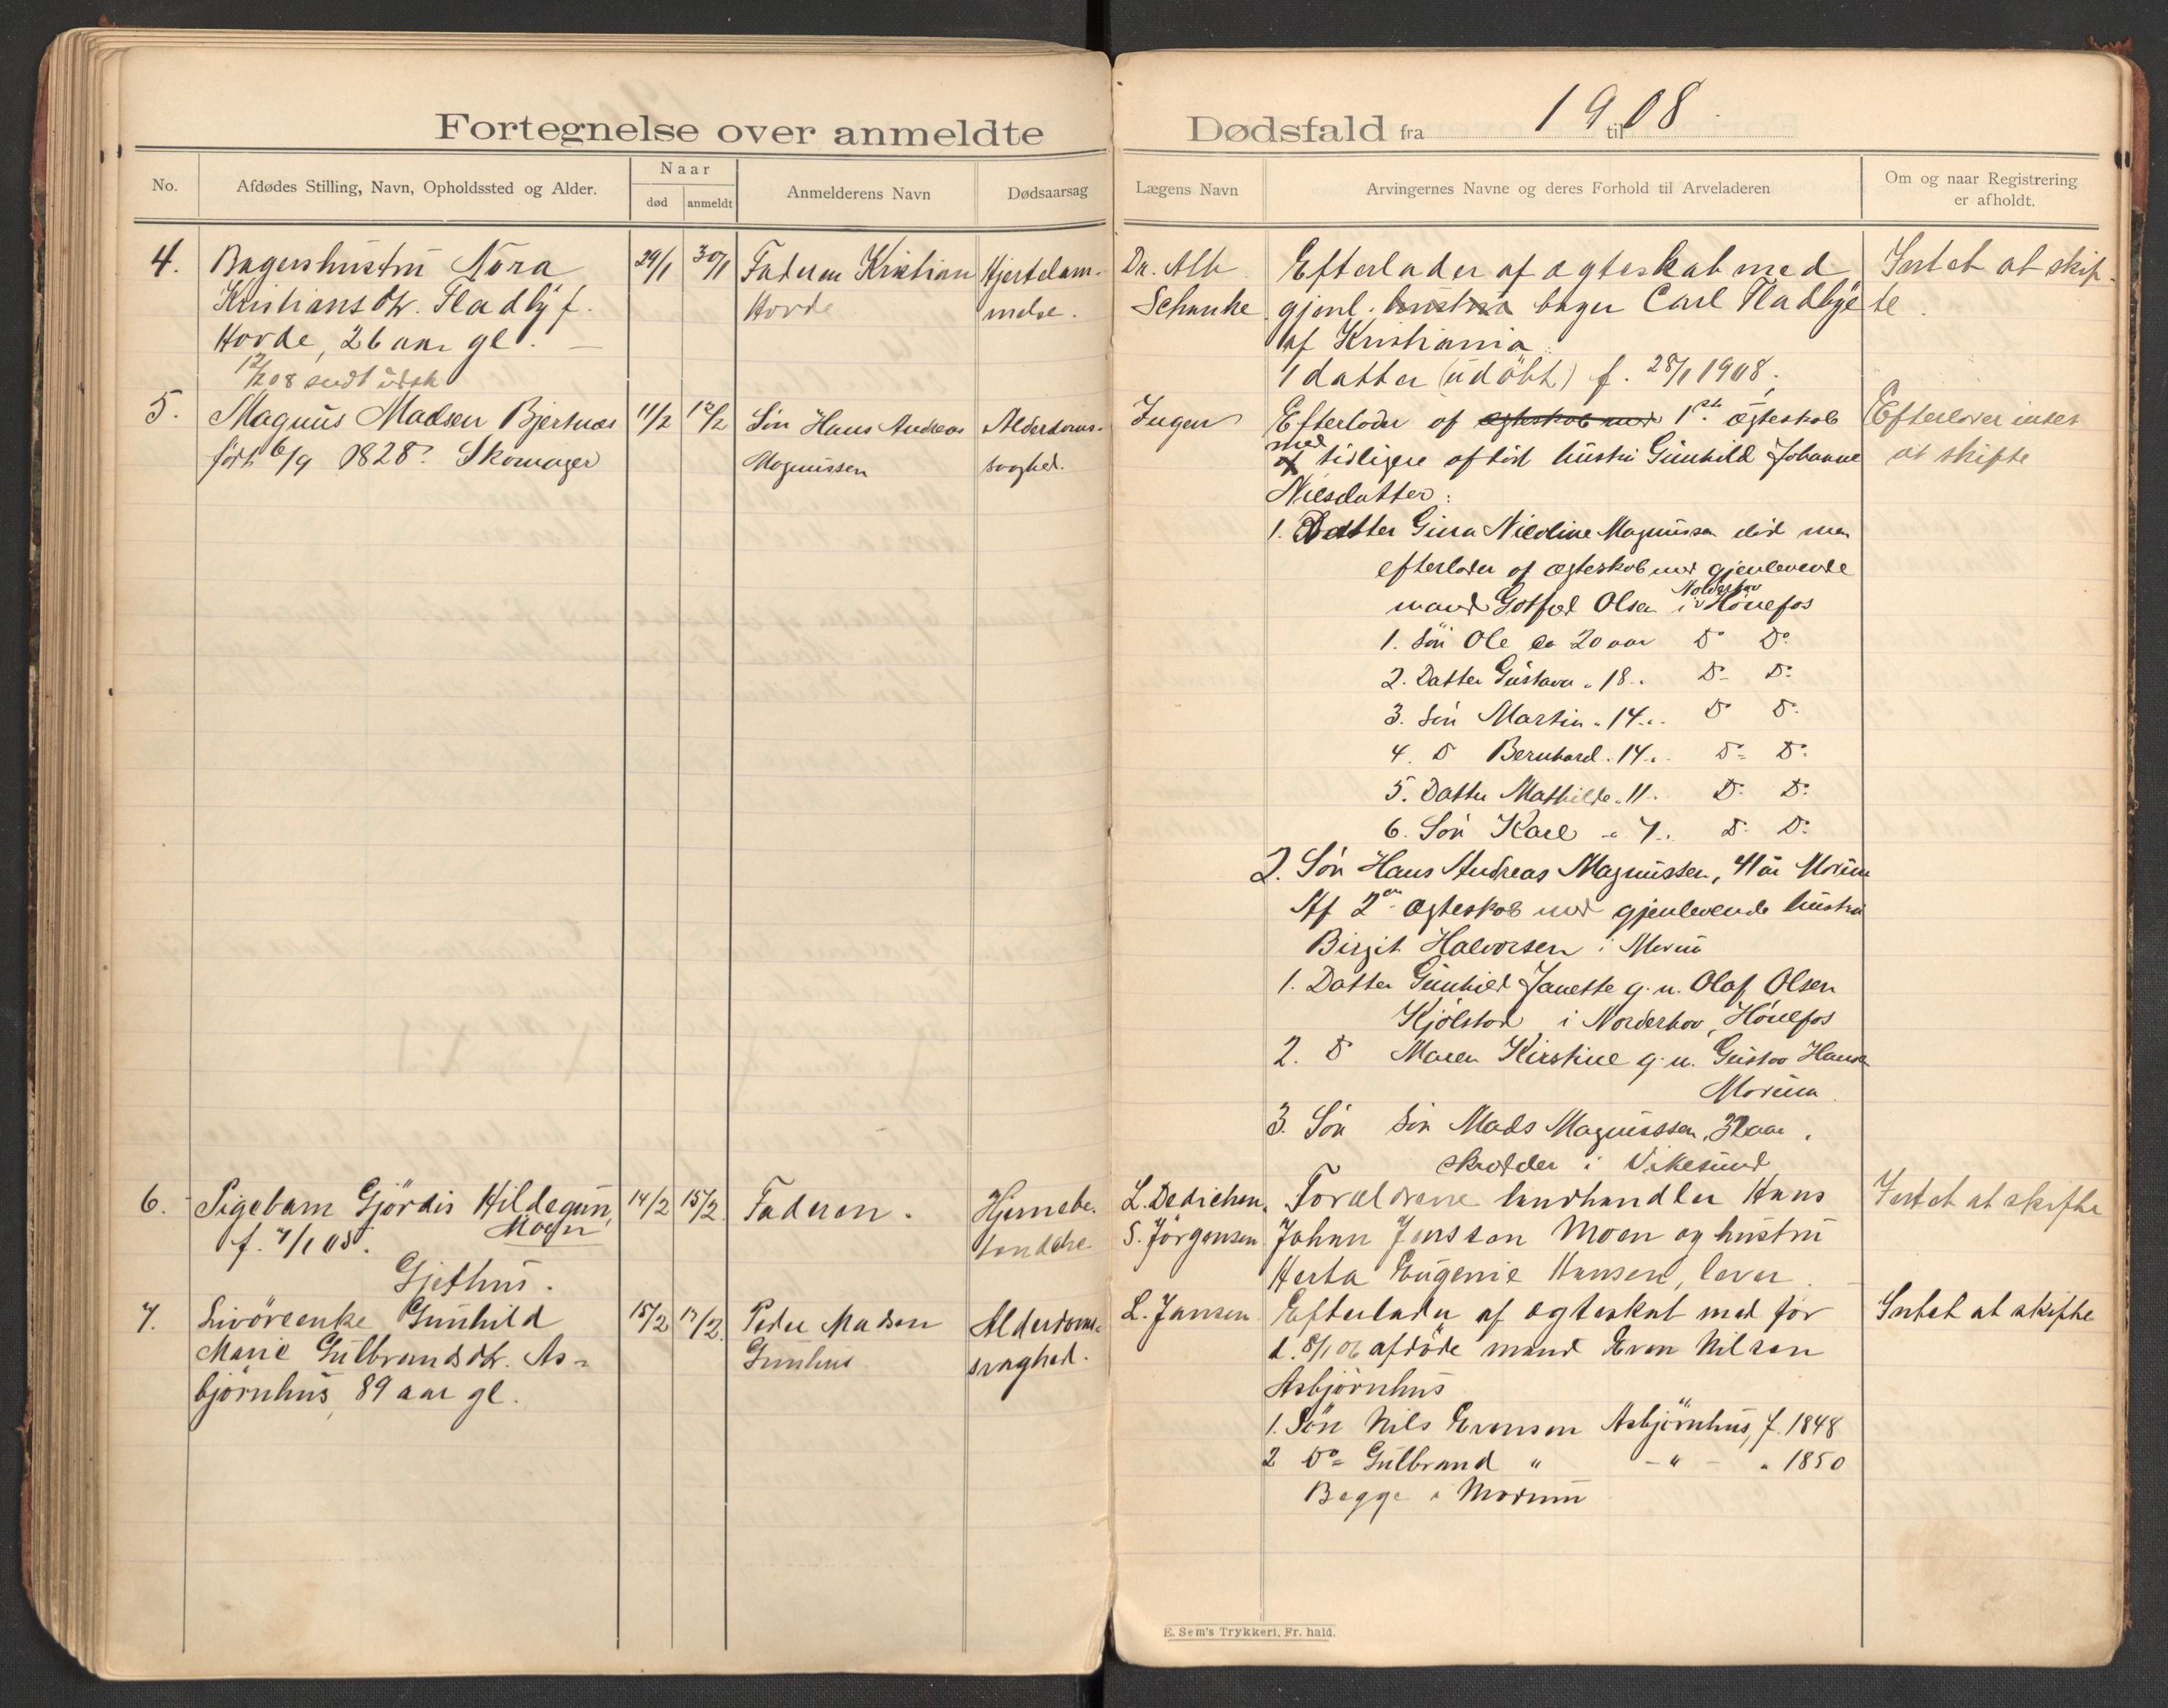 Fortegnelse over anmeldte
Dødsfald fra 1908 til
No.
Afdødes Stilling, Navn, Opholdssted og Alder.
Naar
død
anmeldt
Anmelderens Navn
Dødsaarsag
Lægens Navn
Arvingernes Navne og deres Forhold til Arveladeren
Om og naar Registrering
er afholdt.
4. Bagershustru Nora
Kristiansdtr. Fladby f.
Horde, 26 aar gl. —
12/2 08 sendt
29/1 30/1
Faderen Kristian
Horde
Hjertelam-
melse.
Dr. Alb
Schanke
Efterlader af ægteskab med
gjenl. hustru bager Carl Fladbye
af Kristiania
1 datter (udöbt) f. 28/1 1908.
Intet at skif-
te.
5. Magnus Madsen Bjertnæs
født 6/9 1828. Skomager
11/2 12/2
Sön Hans Andreas
Magnussen
Alderdoms-
svaghed.
Ingen
Efterlader af ægteskab med 1ste ægteskab
med
af tidligere afdöd hustru Gunhild Johanne
Nilsdatter:
1. Datter Gina Nicoline Magnussen död men
efterlader af ægteskab med gjenlevende
Norderhov
mand Gotfred Olsen i Hönefos
1. Sön Ole ca 20 aar Do Do
2. Datter Gustava " 18 " Do Do
3. Sön Martin " 14 " Do Do
4. Do Bernhard " 14 " Do Do
5. Datter Mathilde " 11 " Do Do
6. Sön Karl " 7 " Do Do
2. Sön Hans Andreas Magnussen, 41 år Modum
Af 2et ægteskab med gjenlevende hustru
Birgit Halvorsen i Modum
1. Datter Gunhild Janette g. m. Olaf Olsen
Kjölstad i Norderhov, Hönefos
2. Do Maren Kirstine g. m. Gustav Hansen
Modum
3. Sön Sön Mads Magnussen, aar,
skrædder i Vikesund
Efterlader intet
at skifte
6. Pigebarn Gjördis Hildegun,
f. 7/1 05. Moen
Gjethus.
14/2 15/2
Faderen.
Hjernebe-
tændelse
L. Dedichen,
S. Jörgensen
Forældrene landhandler Hans
Johan Jensson Moen og hustru
Herta Eugenie Hansen, lever.
Intet at skifte
7. Livöreenke Gunhild
Marie Gulbrandsdtr. As-
björnhus, 89 aar gl.
15/2 17/2
Peder Madsen
Grinhus
Alderdoms-
svaghed.
L. Jansen
Efterlader af ægteskab med för
d. 8/1 06 afdöde mand Even Nilsen
Asbjörnhus
1. Sön Nils Evensen Asbjörnhus, f. 1848
2 Do Gulbrand " - " - " 1850
Begge i Modum
Intet at skifte
E. Sem's Trykkeri, Fr.hald.